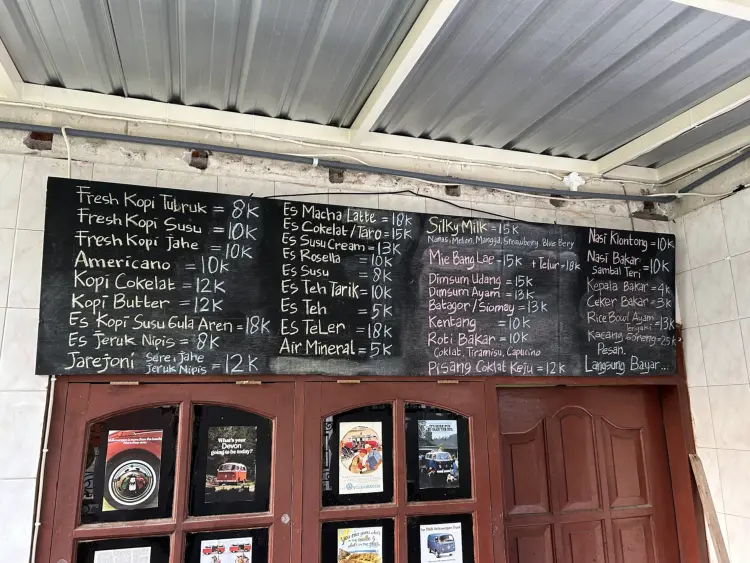 Fresh Kopi Tubruk = 8K
Fresh Kopi Susu = 10K
Fresh Kopi Jahe = 10K
Americano = 10K
Kopi Cokelat = 12K
Kopi Butter = 12K
Es Kopi Susu Gula Aren = 18K
Es Jeruk Nipis = 8K
Jarejoni Sere, Jahe Jeruk Nipis = 12K
Es Macha Latte = 18K
Es Cokelat/Taro = 15K
Es Susu Cream = 13K
Es Rosella = 10K
Es Susu = 8K
Es Teh Tarik = 10K
Es Teh = 5K
Es Teler = 18K
Air Mineral = 5K
Silky Milk = 15K
Nanas, Melon, Mangga, Strawberry, Blue Bery
Mie Bang Lae = 15K + Telur = 18K
Dimsum Udang = 15K
Dimsum Ayam = 13K
Batagor/Siomey = 13K
Kentang = 10K
Roti Bakar = 10K
Coklat, Tiramisu, Capucino
Pisang Coklat Keju = 12K
Nasi Klontong = 10K
Nasi Bakar = 10K
Sambal Teri
Kepala Bakar = 4K
Ceker Bakar = 3K
Rice Bowl Ayam = 13K
Teriyaki
Kacang Goreng = 25K
Pesan.
Langsung Bayar...
What's your
Devon
going to be today?